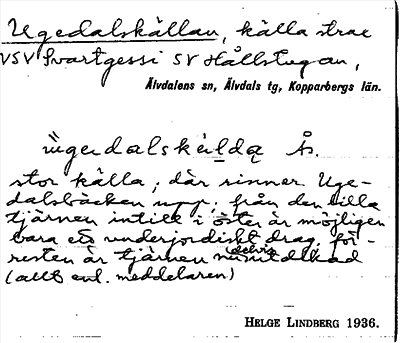 Ugedalskällan, källa strax
VSV Svartgessi SV Hållstugan,
Älvdalens sn, Älvdals tg, Kopparbergs län.
ùgedalskèldą Ås.
stor källa, där rinner Uge-
dalsbäcken upp; från den lilla
tjärnen intill i öster är möjligen
bara ett underjordiskt drag, för-
resten är tjärnen numera delvis utdikad
(allt enl. meddelaren)
HELGE LINDBERG 1936.